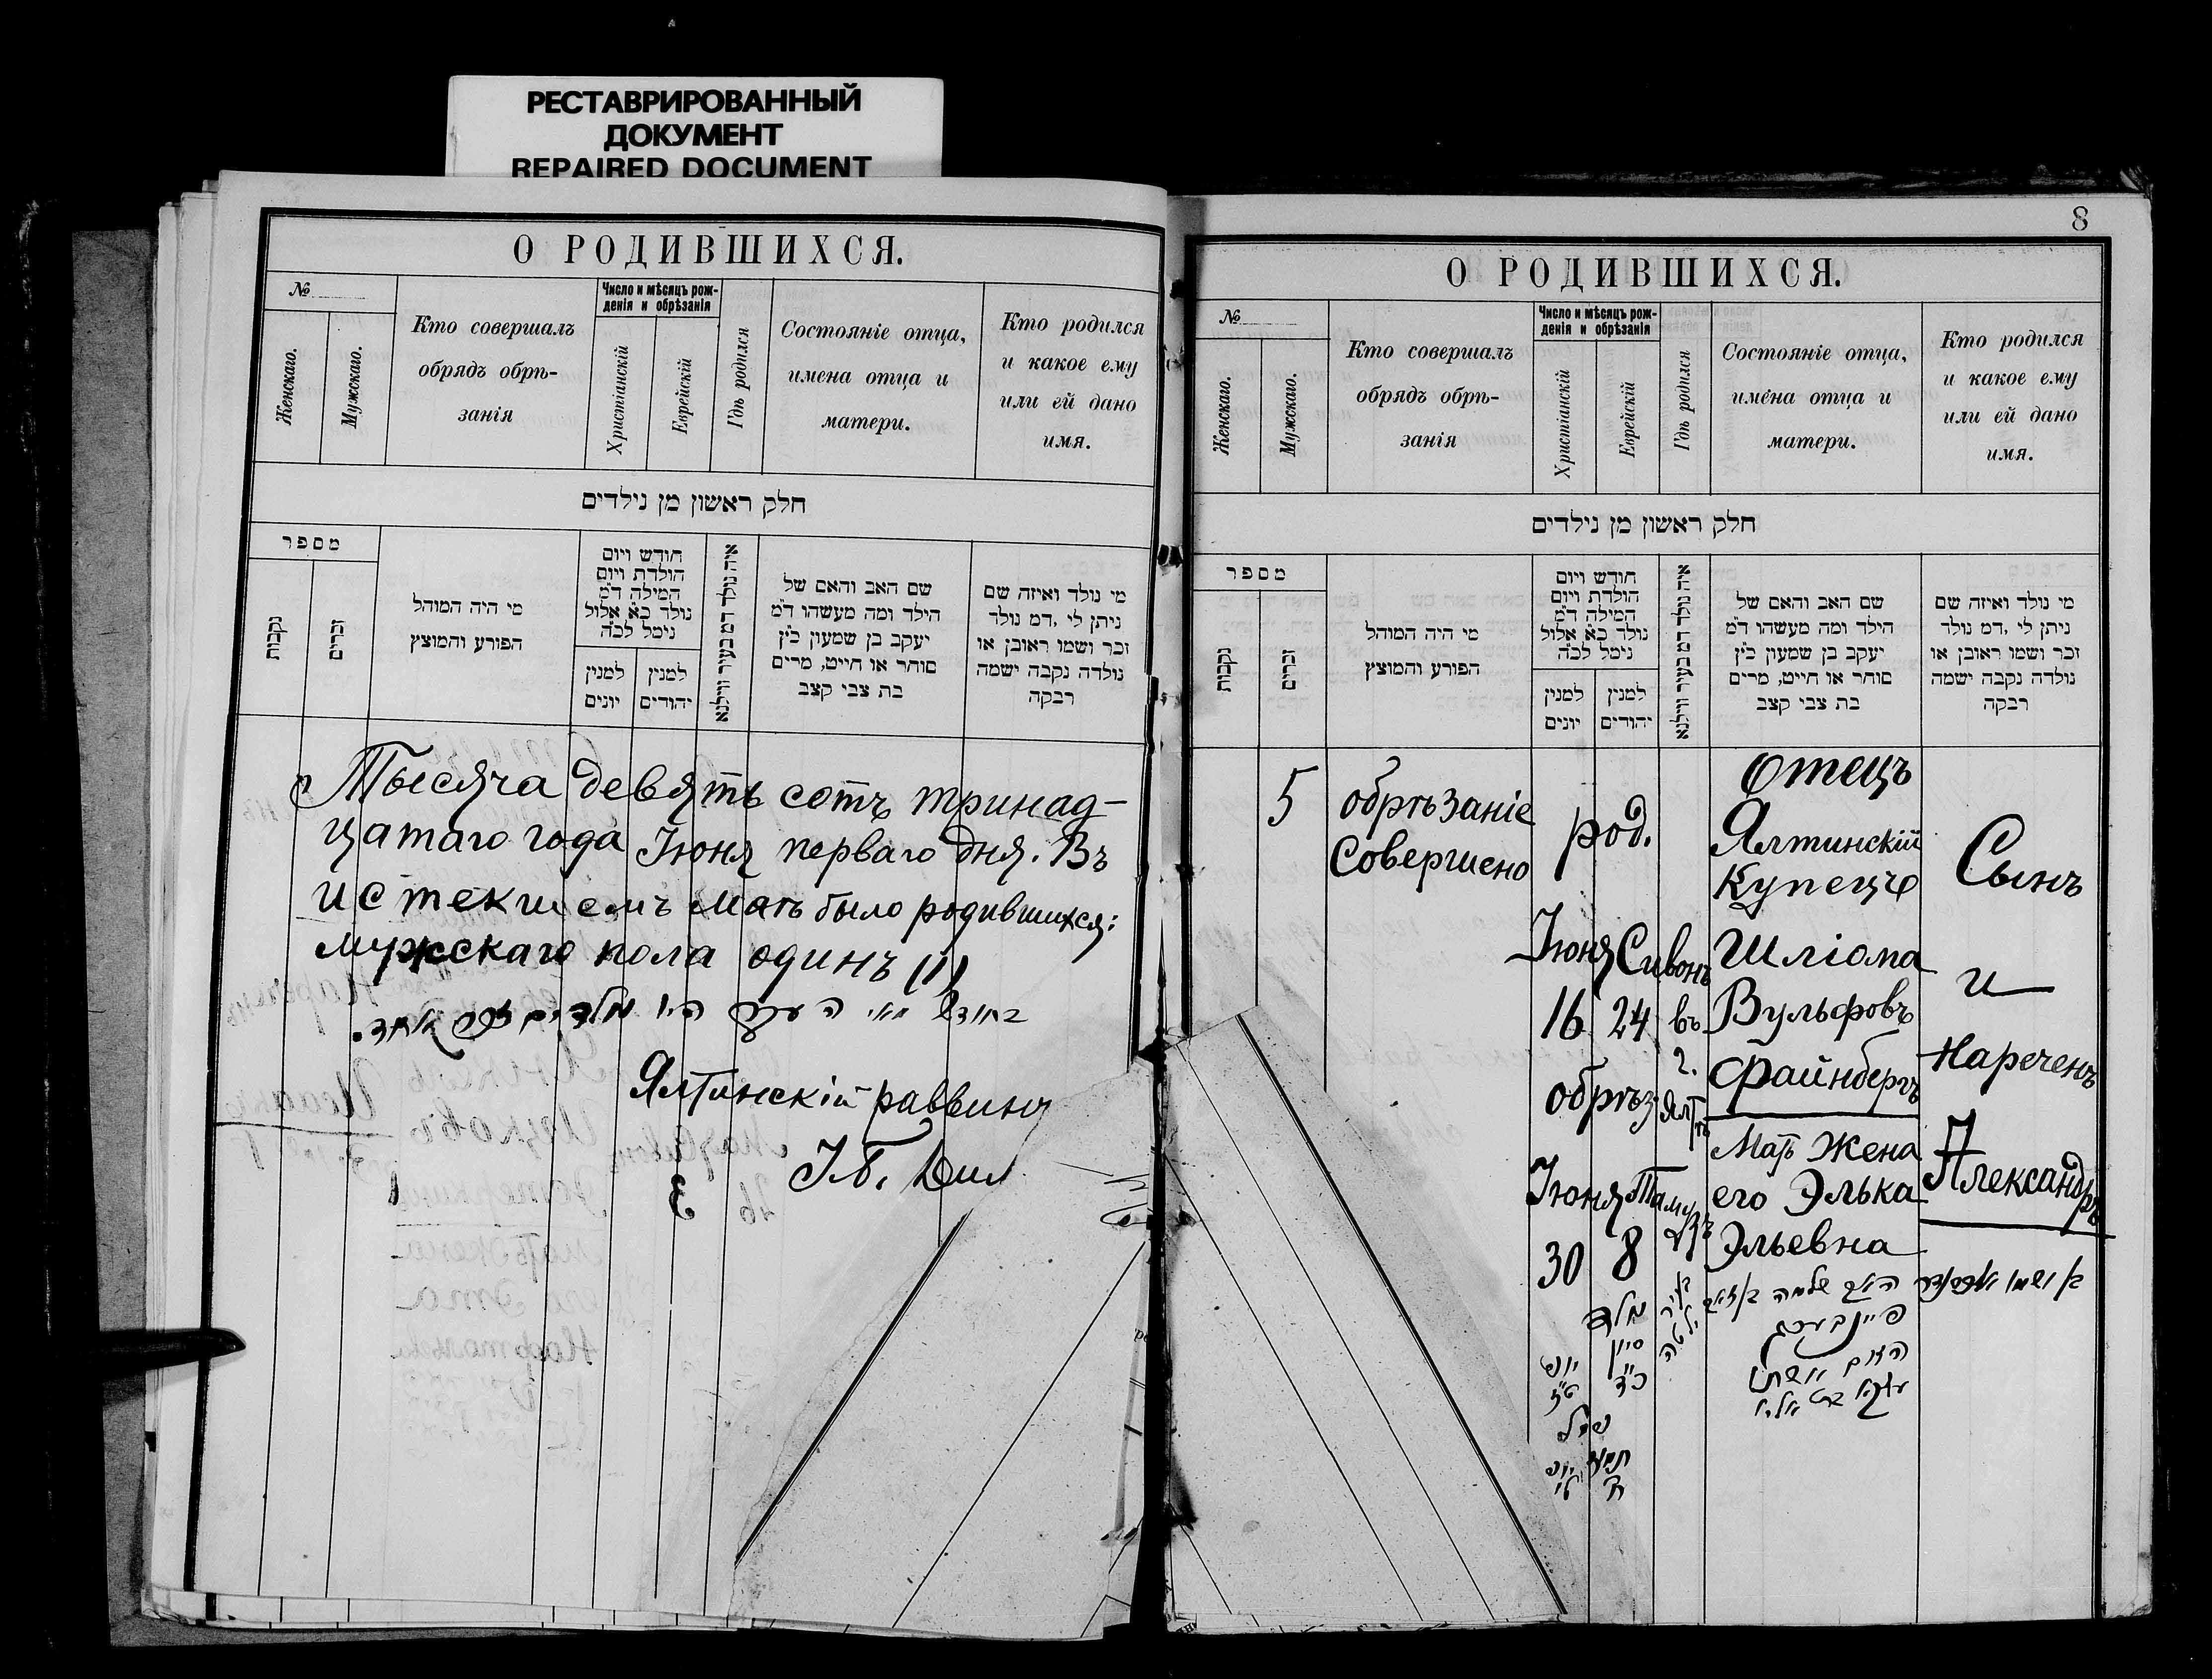 РЕСТАВРИРОВАННЫЙ
ДОКУМЕНТ
REPAIRED DOCUMENT
О РОДИВШИХСЯ.
№
Женскаго.
Мужскаго.
Кто совершалъ
обрядъ обрѣ-
занія
Число и мѣсяцъ рож-
денія и обрѣзанія
Христіанскій
Еврейскій
Гдѣ родился
Состояніе отца,
имена отца и
матери.
Кто родился
и какое ему
или ей дано
имя.
חלק ראשון מן נילדים
מספר
נקבות
זכרים
מי היה המוהל
הפורע והמוצץ
חודש ויום
הולדת ויום
המילה ד״מ
נולד כ״א אלול
נימל לכ״ה
למנין
יונים
למנין
יהודים
איה נולד דמ בעיר ווילנא
שם האב והאם של
הילד ומה מעשהו ד״מ
יעקב בן שמעון כ״ץ
סוחר או חייט, מרים
בת צבי קצב
מי נולד ואיזה שם
ניתן לי, דמ נולד
זכר ושמו ראובן או
נולדה נקבה ישמה
רבקה
Тысяча девять сотъ тринад-
цатаго года Іюня перваго дня. Въ
истекшемъ Маѣ было родившихся:
мужскаго пола одинъ (1)
Ялтинскій раввинъ
8
О РОДИВШИХСЯ.
№
Женскаго.
Мужскаго.
Кто совершалъ
обрядъ обрѣ-
занія
Число и мѣсяцъ рож-
денія и обрѣзанія
Христіанскій
Еврейскій
Гдѣ родился
Состояніе отца,
имена отца и
матери.
Кто родился
и какое ему
или ей дано
имя.
חלק ראשון מן נילדים
מספר
נקבות
זכרים
מי היה המוהל
הפורע והמוצץ
חודש ויום
הולדת ויום
המילה ד״מ
נולד כ״א אלול
נימל לכ״ה
למנין
יונים
למנין
יהודים
איה נולד דמ בעיר ווילנא
שם האב והאם של
הילד ומה מעשהו ד״מ
יעקב בן שמעון כ״ץ
סוחר או חייט, מרים
בת צבי קצב
מי נולד ואיזה שם
ניתן לי, דמ נולד
זכר ושמו ראובן או
נולדה נקבה ישמה
רבקה
5
обрѣзаніе
Совершено
род.
Іюня
16
обрѣз.
Іюня
30
Сивонъ
24
Тамузъ
8
въ
г.
Ялтѣ
Отецъ
Ялтинскій
Купецъ
Шліома
Вульфовъ
Файнбергъ
Мать Жена
его Элька
Эльевна
Сынъ
и
Нареченъ
Александръ